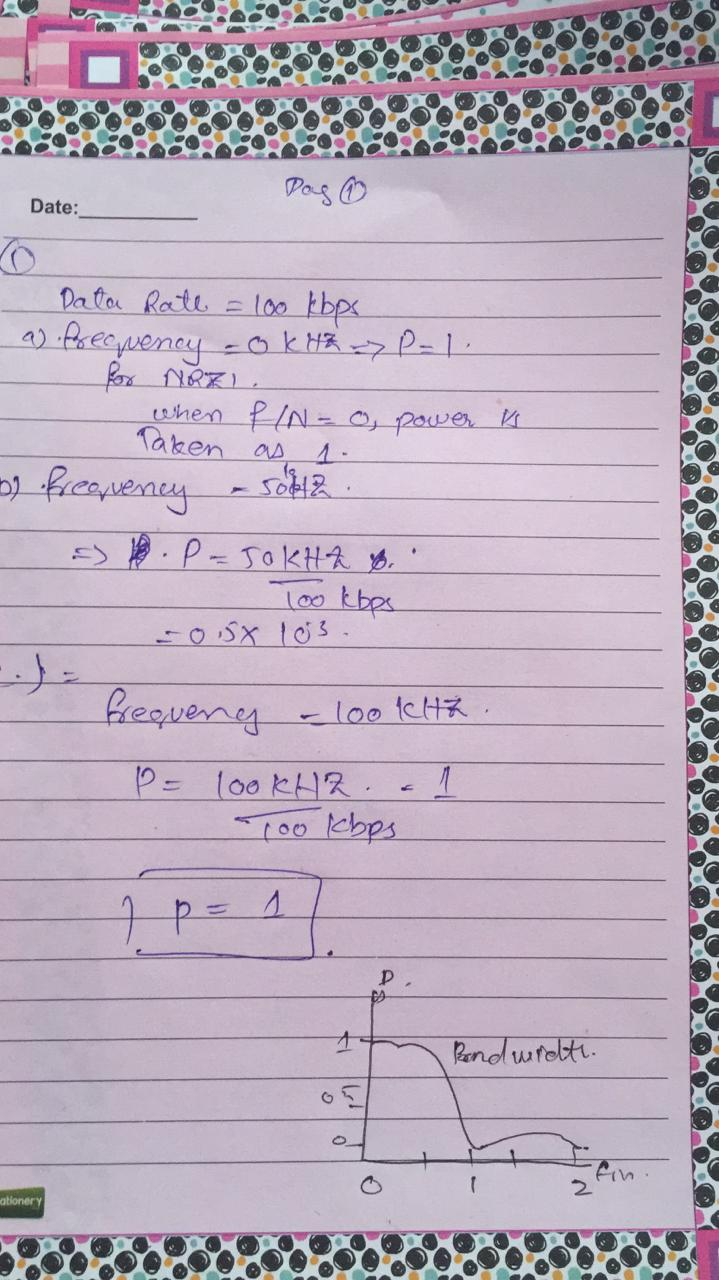 Pag ①
Date:
①
Data Rate = 100 kbps
a) frequency = 0 kHZ => P=1.
for NRZI.
when f/N = 0, power is
Taken as 1.
b) frequency = 50kHZ.
=> P = 50KHZ
100 kbps
= 0.5x 103.
frequency = 100 KHZ.
P = 100KHZ. = 1
100 kbps
P = 1
P.
1
Bandwidth.
0 5
0
0 1 2
ationery